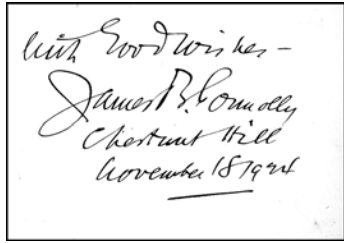 with Good wishes –
James B. Connolly
Chestnut Hill
November 18 1924